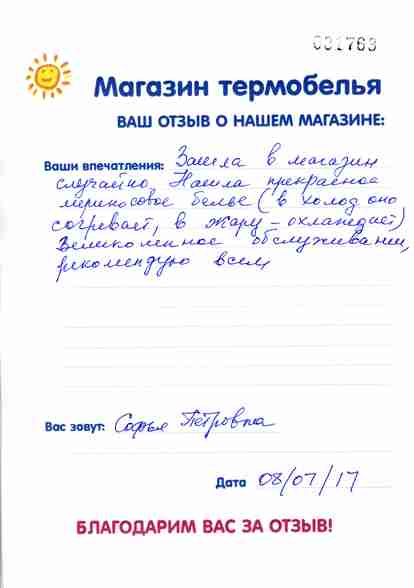 031763
Магазин термобелья
ВАШ ОТЗЫВ О НАШЕМ МАГАЗИНЕ:
Ваши впечатления: Зашла в магазин
случайно. Нашла прекрасное
мериносовое белье (в холод оно
согревает, в жару - охлаждает)
Великолепное обслуживание,
рекомендую всем
Вас зовут: Софья Петровна
Дата 08/07/17
БЛАГОДАРИМ ВАС ЗА ОТЗЫВ!